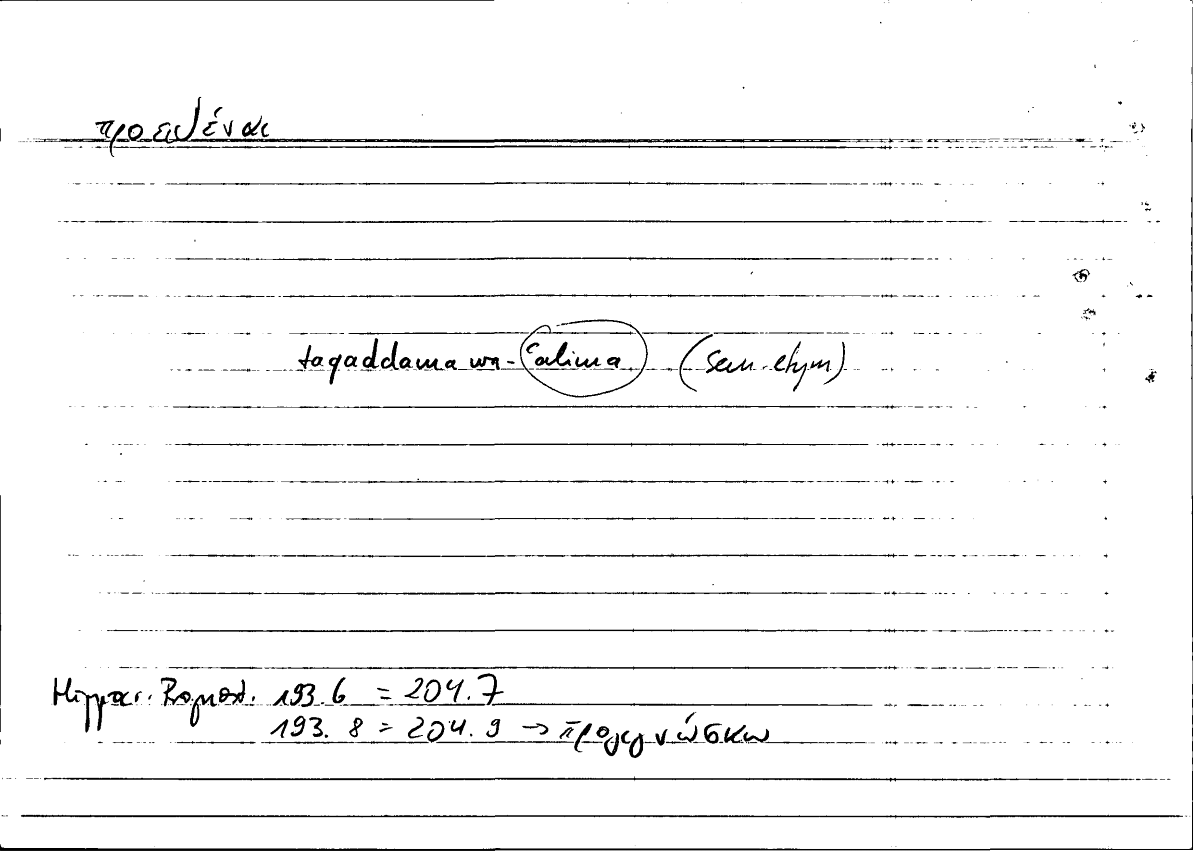 προειδέναι
taqaddama wa-ʿalima (sem. etym)
Hippocr. Prognost. 193.6 = 204.7
193.8 = 204.9 → προγιγνώσκω